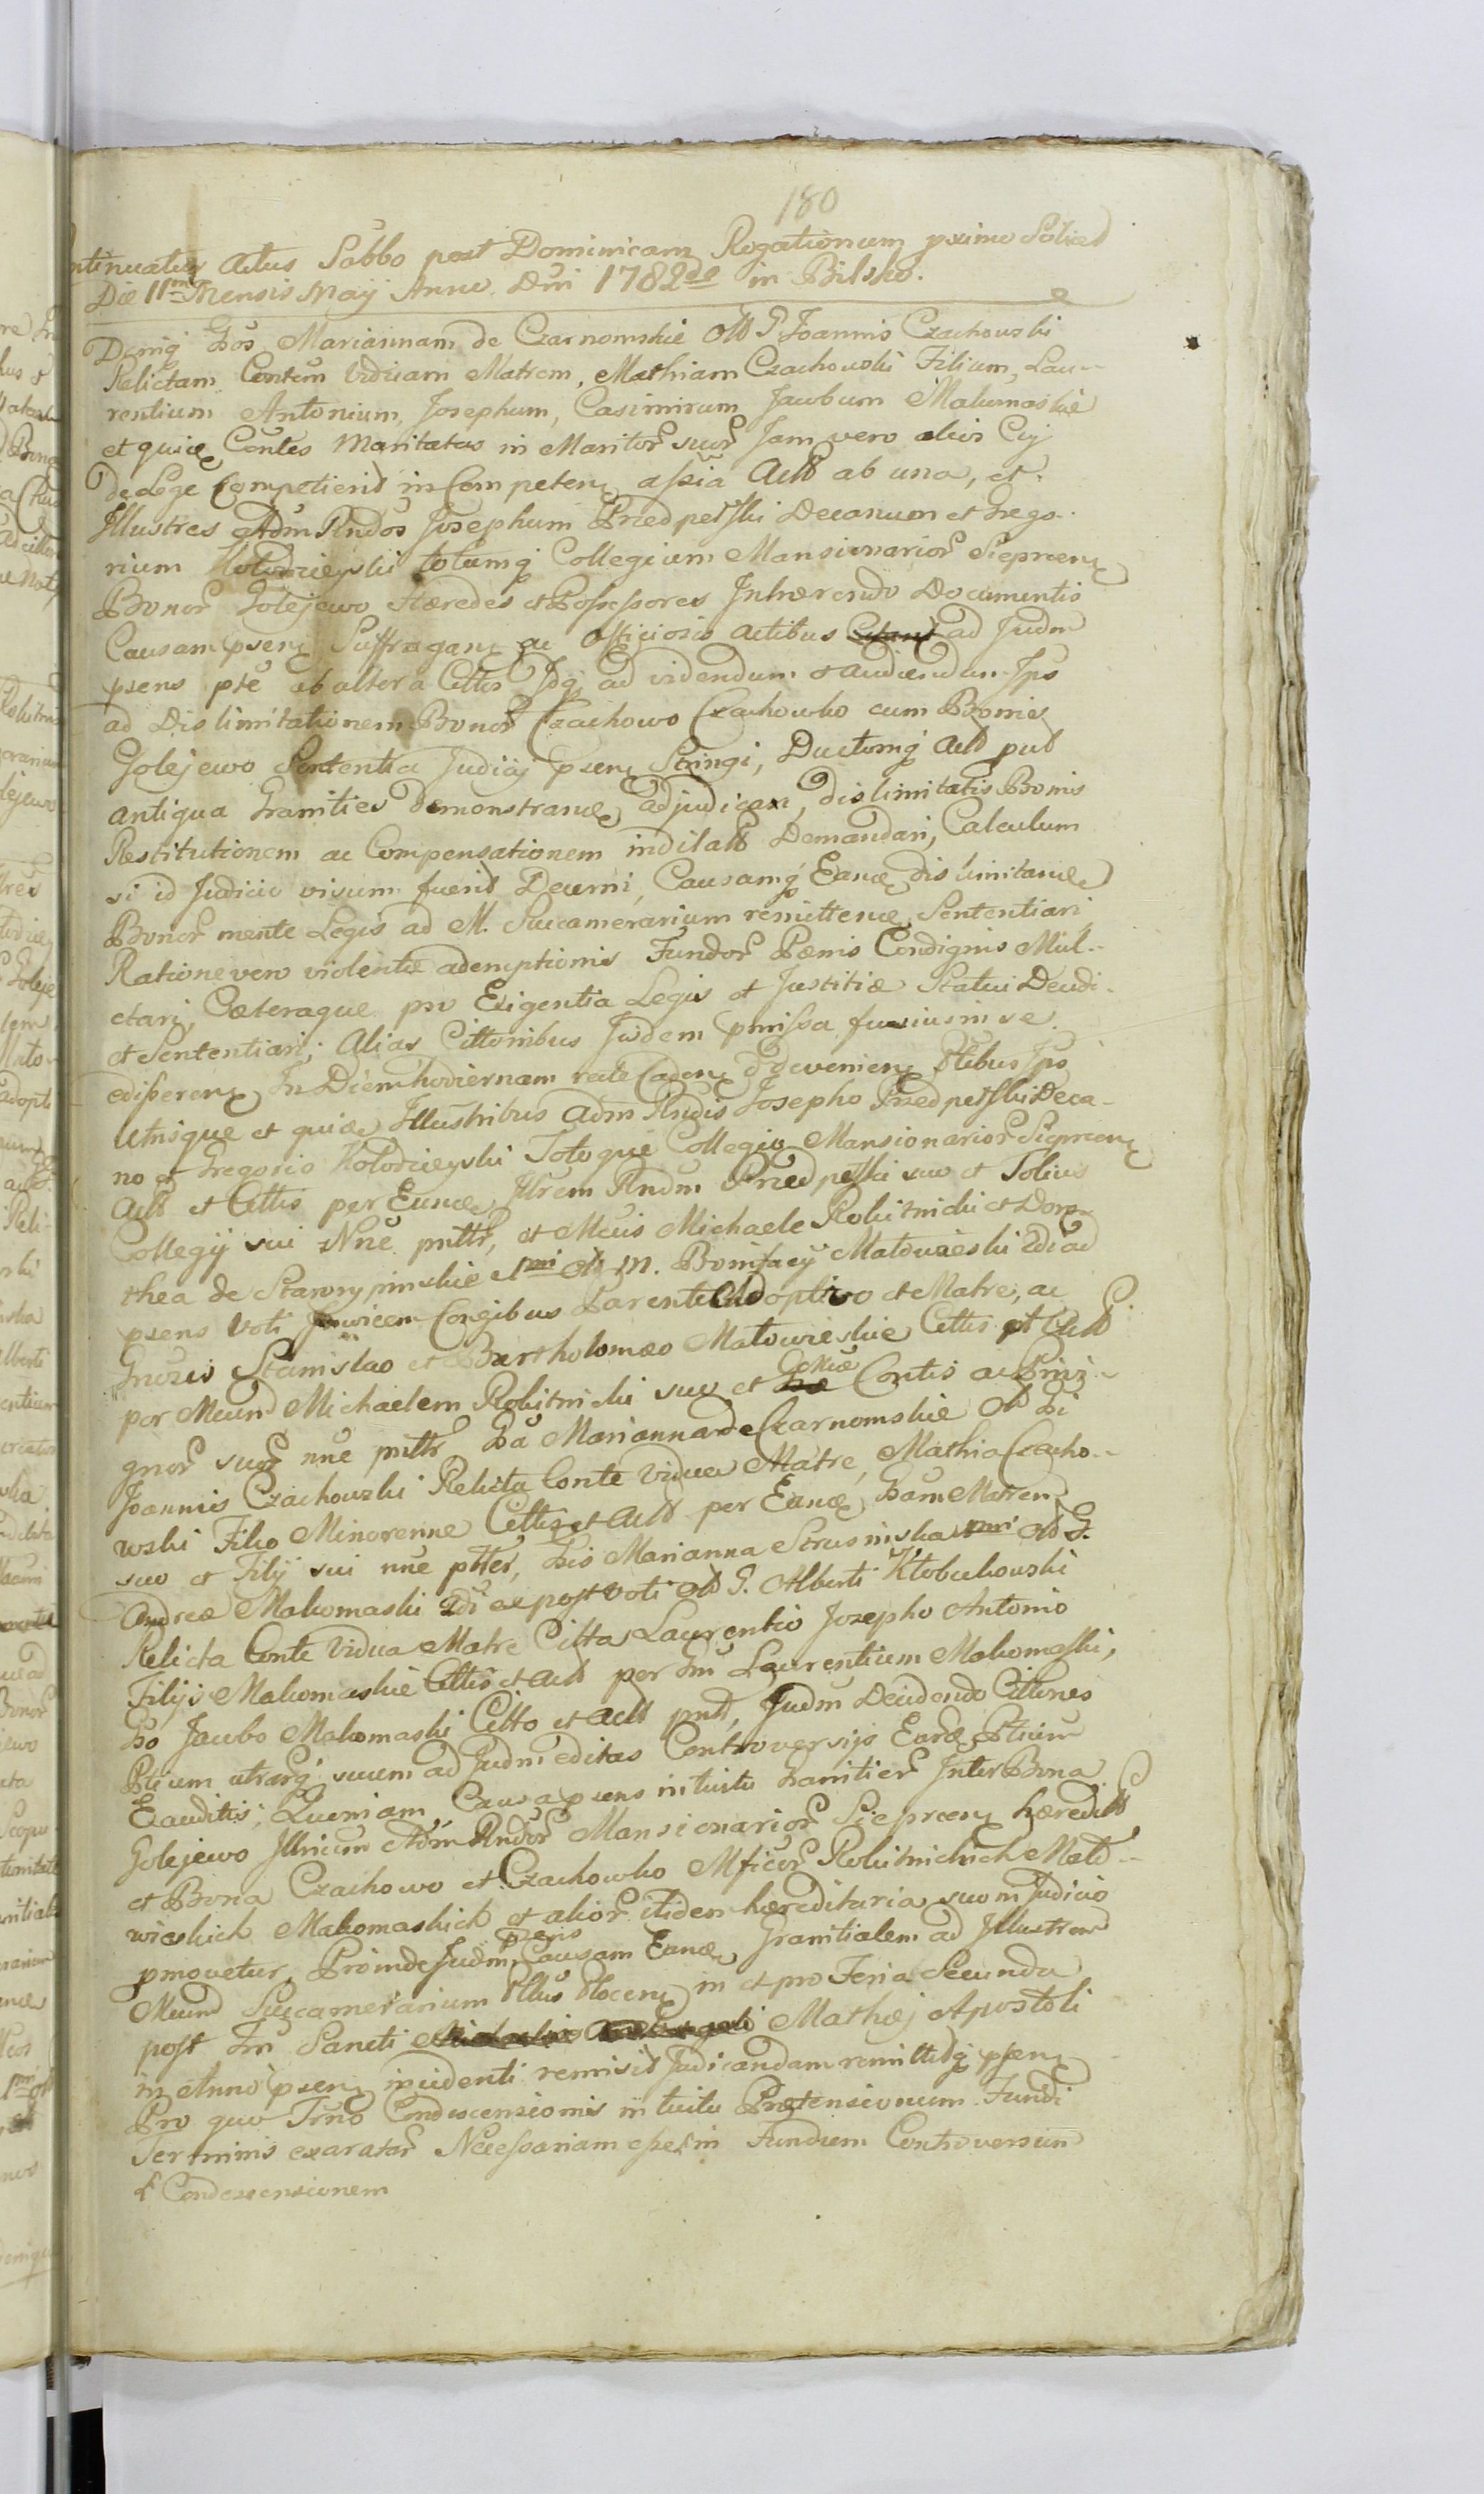 180
ntinuatur Actus Sabbo post Dominicam Rogationum primo
Die 11ma Mensis May Anno Dni 1782do in Bilsko.
Gos Mariannam de Czarnomskie Olb G Joannis Czachowski
Relictam Contem Viduam Matrem, Mathiam Czachowski Filium, Lau-
rentium Antonium, Josephum, Casimirum Jacobum Makomaskie
et quive Contes Maritatas in Maritor suor Jam vero alios Cuj
de Lege Competierit in Competen assia Actt ab una, et
Illustres Adm Rndos Josephum Przedpelski Decanum et Grego-
rium Kołodzieyski totumq Collegium Mansionarior Sieprcen
Bonor Golejewo Hæredes et Possessores Inhærendo Documentis
Causam psen Suffragan ac Officiosis actibus ad Judm
psens pte ab altera Cittos Idq ad videndum et audiendum Ips
ad Dislimitationem Bonor Czachowo Czachowko cum Bonis
Golejewo Sententia Judicij psen Stringi, Ductumq Actt pub
antiqua Granities demonstran adjudicari, dislimitatis Bonis
Restitutionem ac Compensationem indilatt Demandari, Calculum
si id Judicio visum fuerit Decerni, Causamq Eand dislimitan
Bonor mente Legis ad M. Succamerarium remitten Sententiari
Ratione vero violentæ ademptionis Fundor Pœnis Condignis Mul-
ctari, Cæteraque pro Exigentia Legis et Justitiæ Statui Decidi
et Sententiari, Alias Cittonibus Judem pmissa fusius in se
edisseren In Diem hodiernam recte caden et devenien Ptibus Ips
Utrisque et quidem Illustribus Adm Rndis Josepho Przedpelski Deca-
no et Gregorio Kołodzieyski Totoque Collegio Mansionarior Sieprcen
Actt et Cittis per Eund Illrem Rndm Przedpelski suo et Totius
Collegij sui Nne pnttr, et Mcis Michaele Rokitnicki et Doro-
thea de Staropypinskie 1mi Olb M. Bonifacij Matowieski 2di ad
psens Voti Invicem Conjbus Parente Adoptivo et Matre, ac
Gnosis Stanislao et Bartholomæo Matowieskie Cittis et Actt
per Mcum Michaelem Rokitnicki suo et Contis ac Privi-
gnor suor nne pnttr Ga Marianna de Czarnomskie Olb Gi
Joannis Czachowski Relicta Conte Vidua Matre, Mathia Czacho-
wski Filio Minorenne Cittis et Actt per Eand Gam Matrem
suo et Filij sui nne pttes, Gis Marianna Strusinska 1mi Olb G.
Andreæ Makomaski 2di ex post voti Olb G. Alberti Kłobukowski
Relicta Conte Vidua Matre Citta Laurentio Josepho Antonio
Filijs Makomaskie Cittis et Actt per Gm Laurentium Makomaski,
Go Jacobo Makomaski Citto et Actt pntt, Judm Decidendo Cittones
Ptium utrarq suum ad Judm editas Controversijs Eard Ptium
Exauditis, Quoniam Causa psens intuitu Granitier Inter Bona
Golejewo Illrium Adm Rndor Mansionarior Sieprcen hæreditt
et Bona Czachowo et Czachowko Mficor Rokitnickich Mato-
wieskich Makomaskich et alior itidem hæreditaria suo in Judicio
pmovetur, Proinde Judm psens Causam Eand Granitialem ad Illustrem
Mcum Succamerarium Pttus Plocen in et pro Feria Secunda
post Fm Sancti Mathæj Apostoli
in Anno psen incidenti remisit Judicandam remittitq psen
Pro quo Trno Condescensionis intuitu Prætensionum Fundi
Terminis exaratar Necessariam esse in Fundum Controversum
Condescensionem